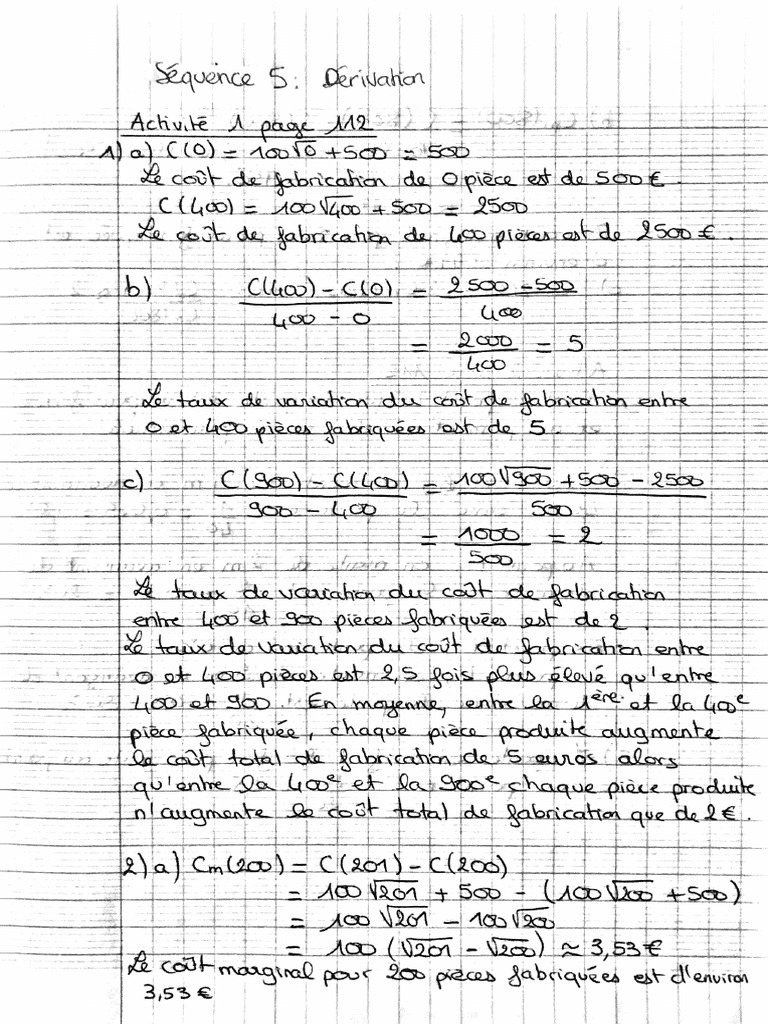 Séquence 5 : Dérivation
Activité 1 page 112
1) a) C(0) = 100√0 + 500 = 500
Le coût de fabrication de 0 pièce est de 500 €.
C(400) = 100√400 + 500 = 2500
Le coût de fabrication de 400 pièces est de 2500 €.
b) (C(400) - C(0)) / (400 - 0) = (2500 - 500) / 400
= 2000 / 400 = 5
Le taux de variation du coût de fabrication entre
0 et 400 pièces fabriquées est de 5.
c) (C(900) - C(400)) / (900 - 400) = (100√900 + 500 - 2500) / 500
= 1000 / 500 = 2
Le taux de variation du coût de fabrication
entre 400 et 900 pièces fabriquées est de 2.
Le taux de variation du coût de fabrication entre
0 et 400 pièces est 2,5 fois plus élevé qu'entre
400 et 900. En moyenne, entre la 1ère et la 400e
pièce fabriquée, chaque pièce produite augmente
le coût total de fabrication de 5 euros alors
qu'entre la 400e et la 900e chaque pièce produite
n'augmente le coût total de fabrication que de 2 €.
2) a) Cm(200) = C(201) - C(200)
= 100√201 + 500 - (100√200 + 500)
= 100√201 - 100√200
= 100(√201 - √200) ≈ 3,53 €
Le coût marginal pour 200 pièces fabriquées est d'environ
3,53 €